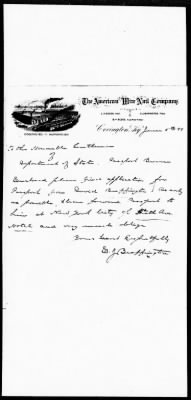 The American Wire Nail Company.
Covington, Ky. June 5th
To the Honorable Gentlemen
of
Department of State. Passport Bureau
Enclosed please find application for
Passport from David Braffington. As early
as possible, please forward Passport to
him at New York City c/o Fifth Ave
Hotel and very much oblige
Yours most Respectfully
D. J. Braffington